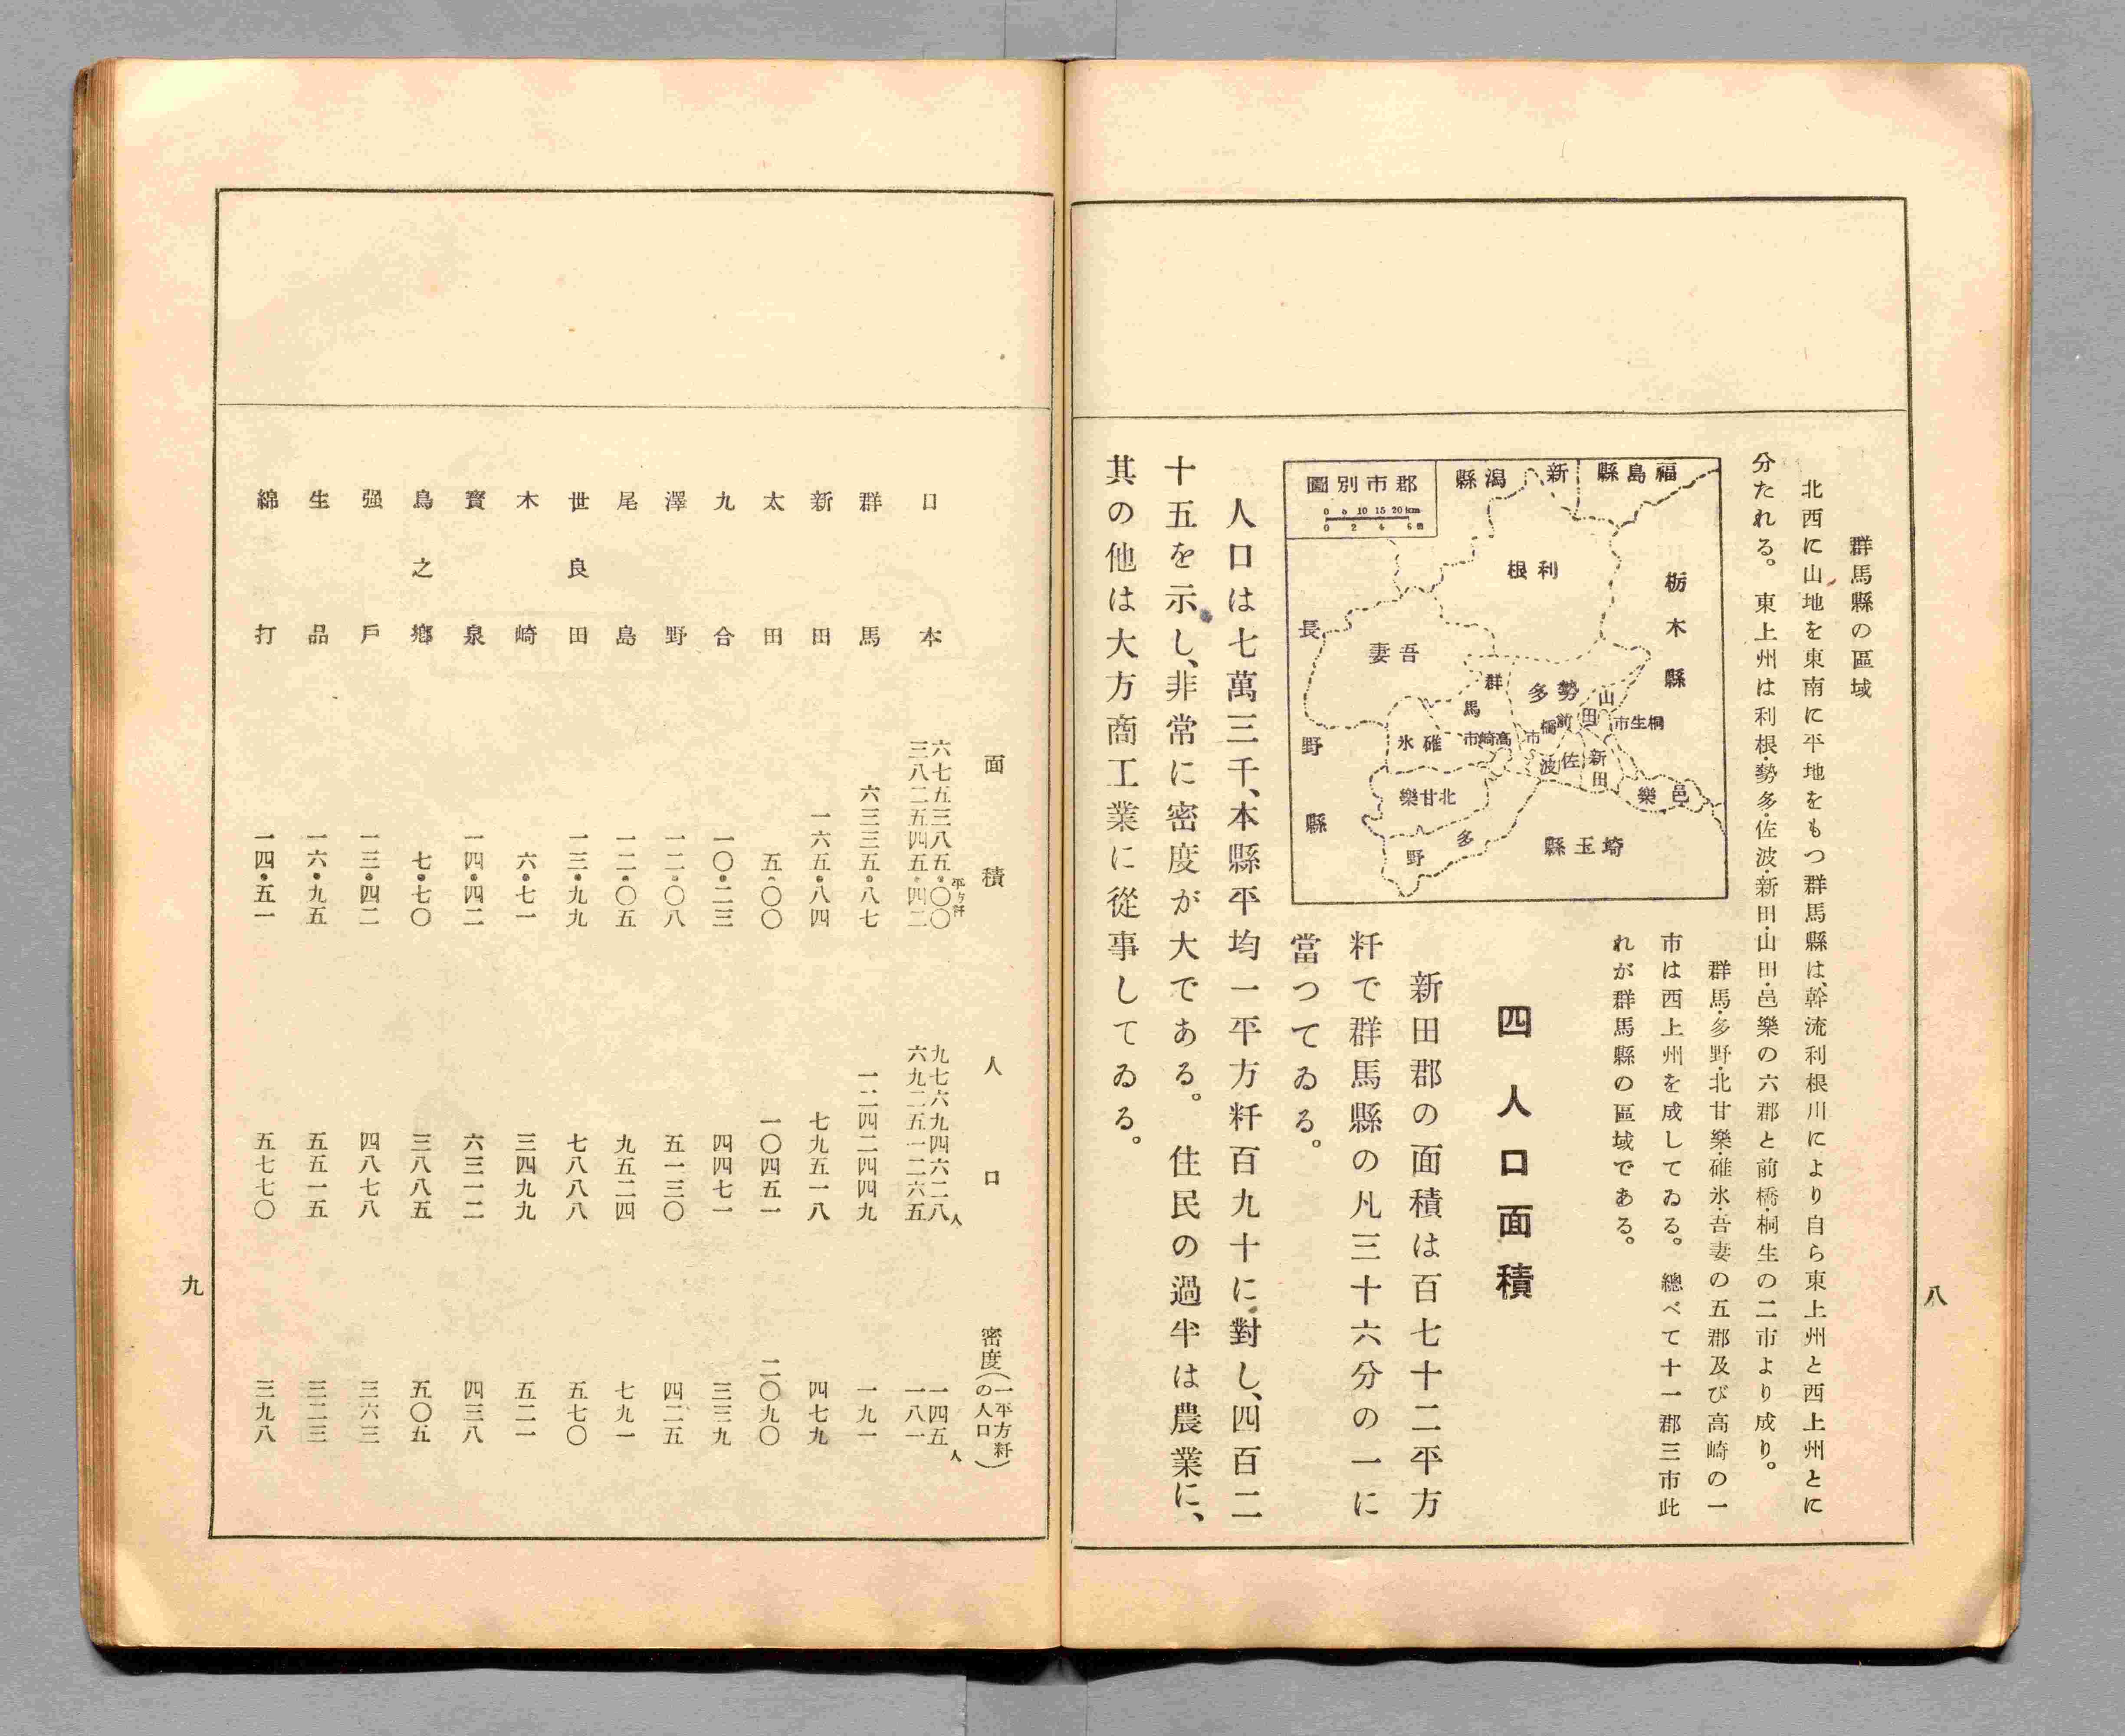 群馬縣の區域
北西に山地を東南に平地をもつ群馬縣は、幹流利根川により自ら東上州と西上州とに
分たれる。東上州は利根・勢多・佐波・新田・山田・邑樂の六郡と前橋・桐生の二市より成り。
群馬・多野・北甘樂・碓氷・吾妻の五郡及び高崎の一
市は西上州を成してゐる。總べて十一郡三市此
れが群馬縣の區域である。
郡市別圖
0 5 10 15 20km
0 2 4 6里
福島縣
新潟縣
栃木縣
利根
長野縣
吾妻
群馬
勢多
山田
桐生市
前橋市
高崎市
碓氷
佐波
新田
邑樂
北甘樂
多野
埼玉縣
四 人口面積
新田郡の面積は百七十二平方
粁で群馬縣の凡三十六分の一に
當つてゐる。
人口は七萬三千、本縣平均一平方粁百九十に對し、四百二
十五を示し、非常に密度が大である。住民の過半は農業に、
其の他は大方商工業に從事してゐる。
八
面積 人口 密度(一平方粁の人口)
日本 六七五三八五・〇〇平方粁 九七六九四六二八人 一四五人
三八二五四五・四二 六九二五一二六五 一八一
群馬 六三三五・八七 一二四二四四九 一九一
新田 一六五・八四 七九五一八 四七九
太田 五・〇〇 一〇四五一 二〇九〇
九合 一〇・二三 四四七一 三三九
澤野 一二・〇八 五一三〇 四二五
尾島 一二・〇五 九五二四 七九一
世良田 一三・九九 七八八八 五七〇
木崎 六・七一 三四九九 五二一
寶泉 一四・四二 六三一二 四三八
鳥之鄕 七・七〇 三八八五 五〇五
强戶 一三・四二 四八七八 三六三
生品 一六・九五 五五一五 三二三
綿打 一四・五一 五七七〇 三九八
九